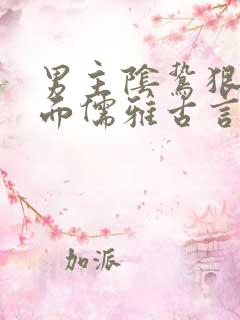 男主陰鷙狠
而儒雅古言
加派